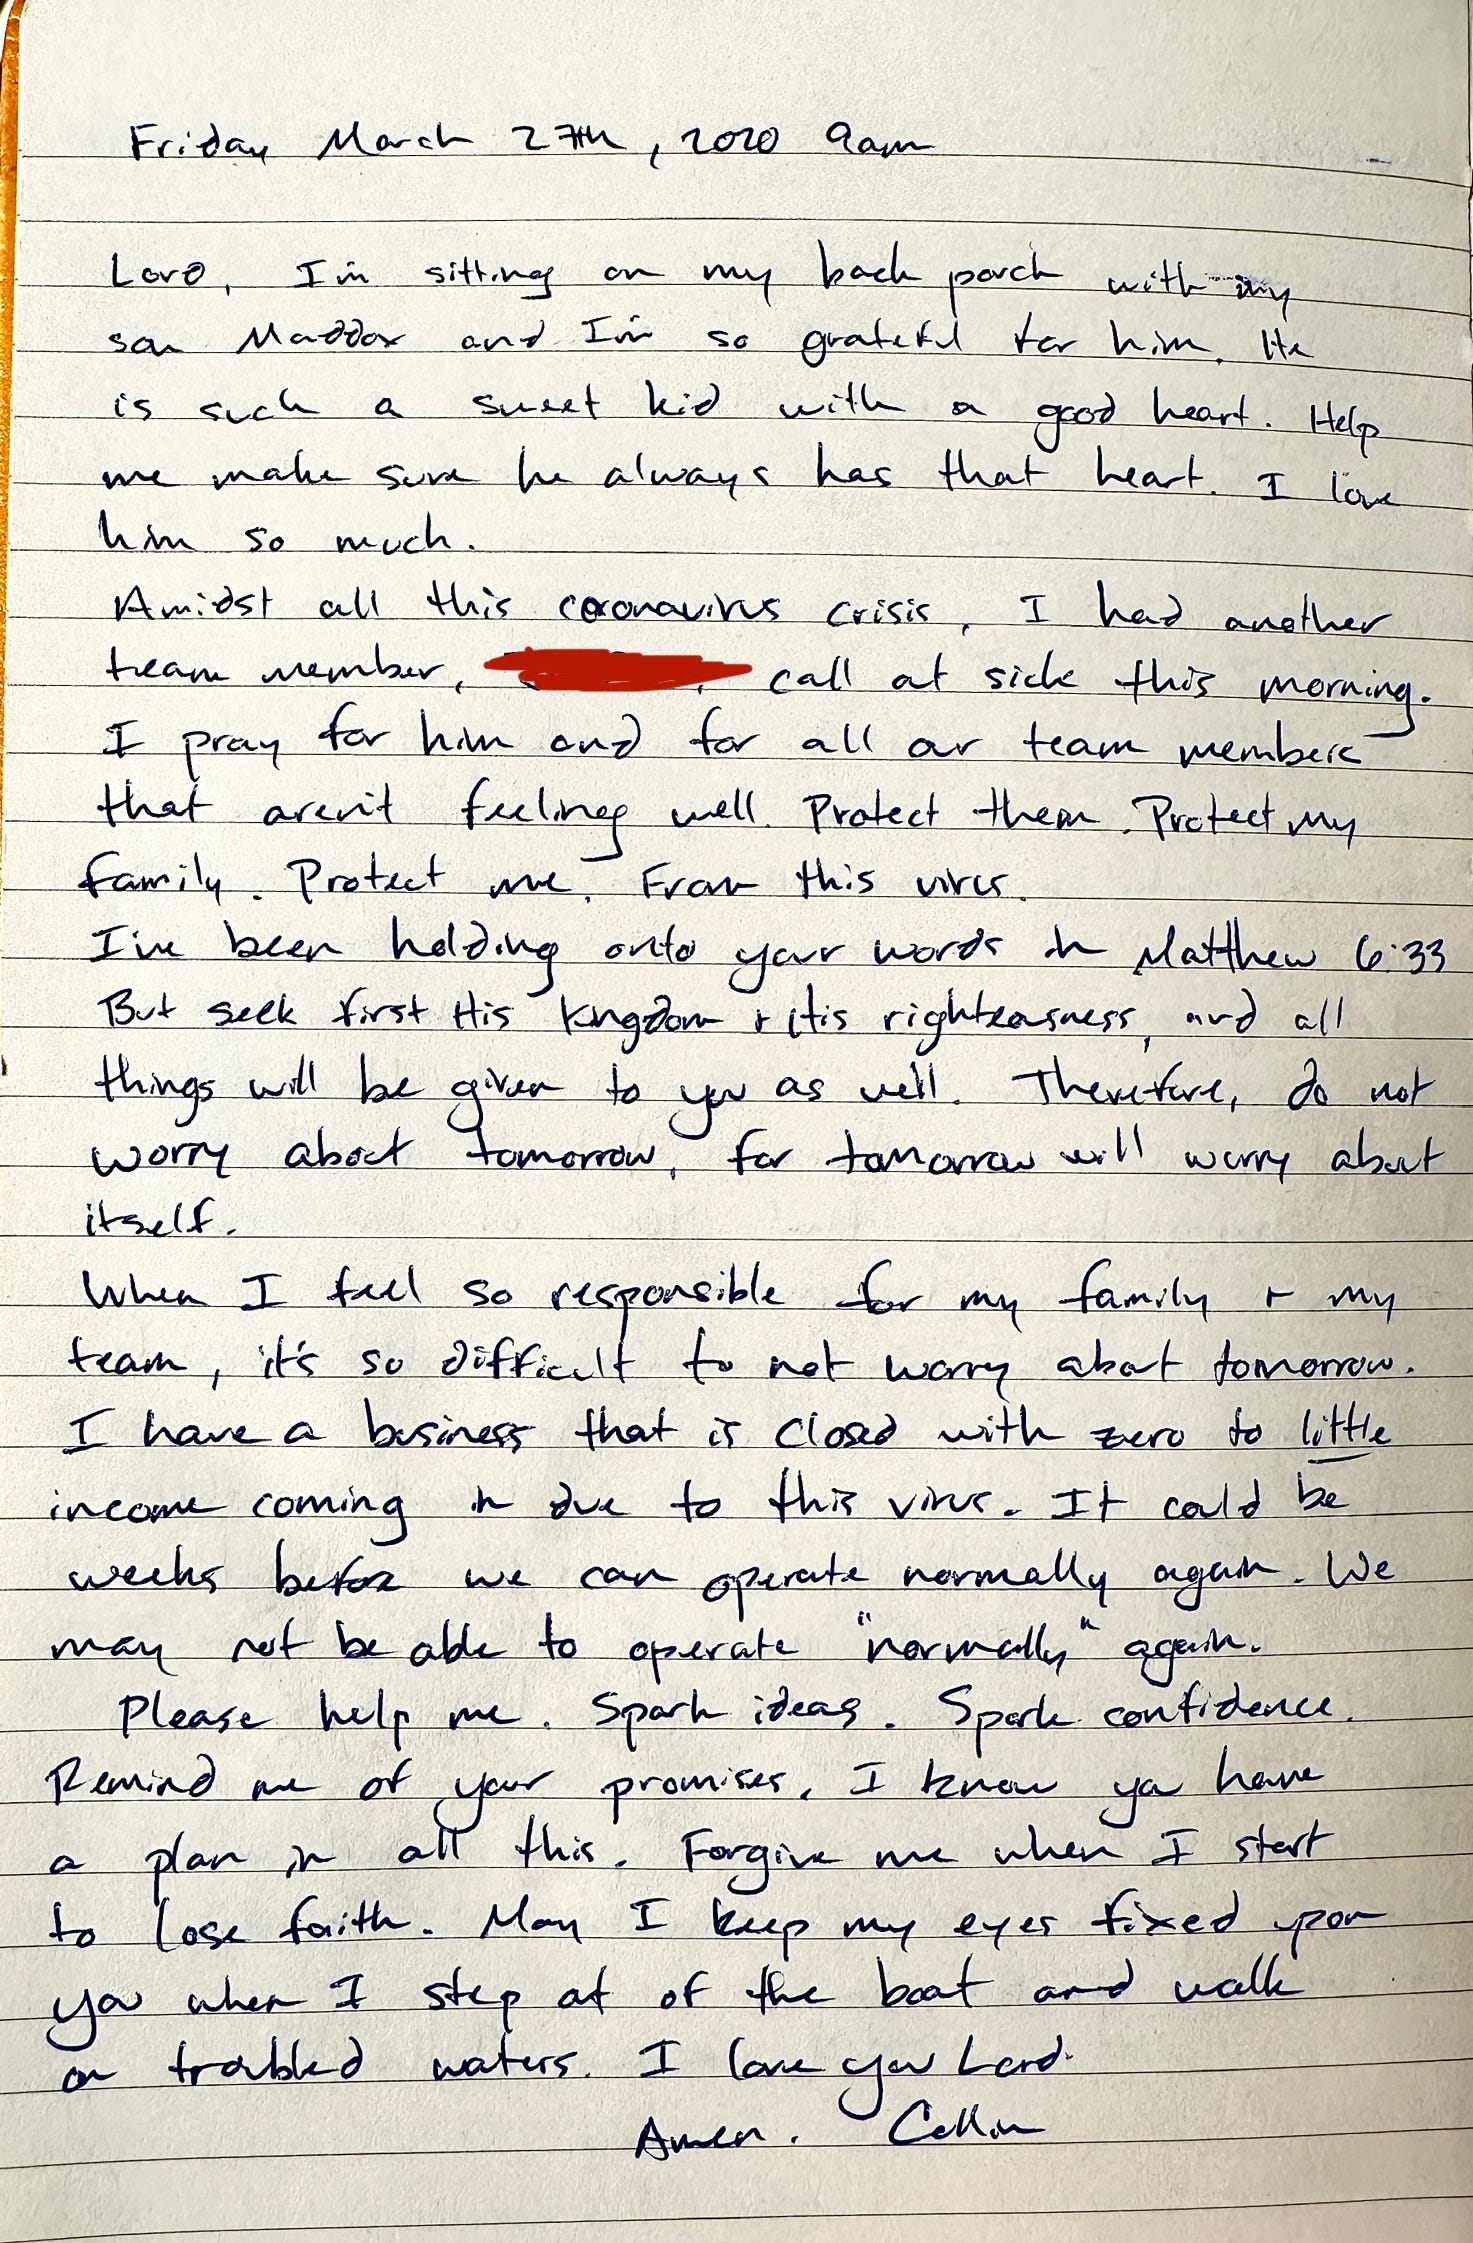 Friday March 27th, 2020 9am
Lord, I'm sitting on my back porch with my
son Maddox and I'm so grateful for him. He
is such a sweet kid with a good heart. Help
me make sure he always has that heart. I love
him so much.
Amidst all this coronavirus crisis, I had another
team member, , call out sick this morning.
I pray for him and for all our team members
that aren't feeling well. Protect them. Protect my
family. Protect me. From this virus.
I've been holding onto your words in Matthew 6:33
But seek first His kingdom + His righteousness, and all
things will be given to you as well. Therefore, do not
worry about tomorrow, for tomorrow will worry about
itself.
When I feel so responsible for my family + my
team, it's so difficult to not worry about tomorrow.
I have a business that is closed with zero to little
income coming in due to this virus. It could be
weeks before we can operate normally again. We
may not be able to operate "normally" again.
Please help me. Spark ideas. Spark confidence.
Remind me of your promises. I know you have
a plan in all this. Forgive me when I start
to lose faith. May I keep my eyes fixed upon
you when I step out of the boat and walk
on troubled waters. I love you Lord.
Amen. Collin